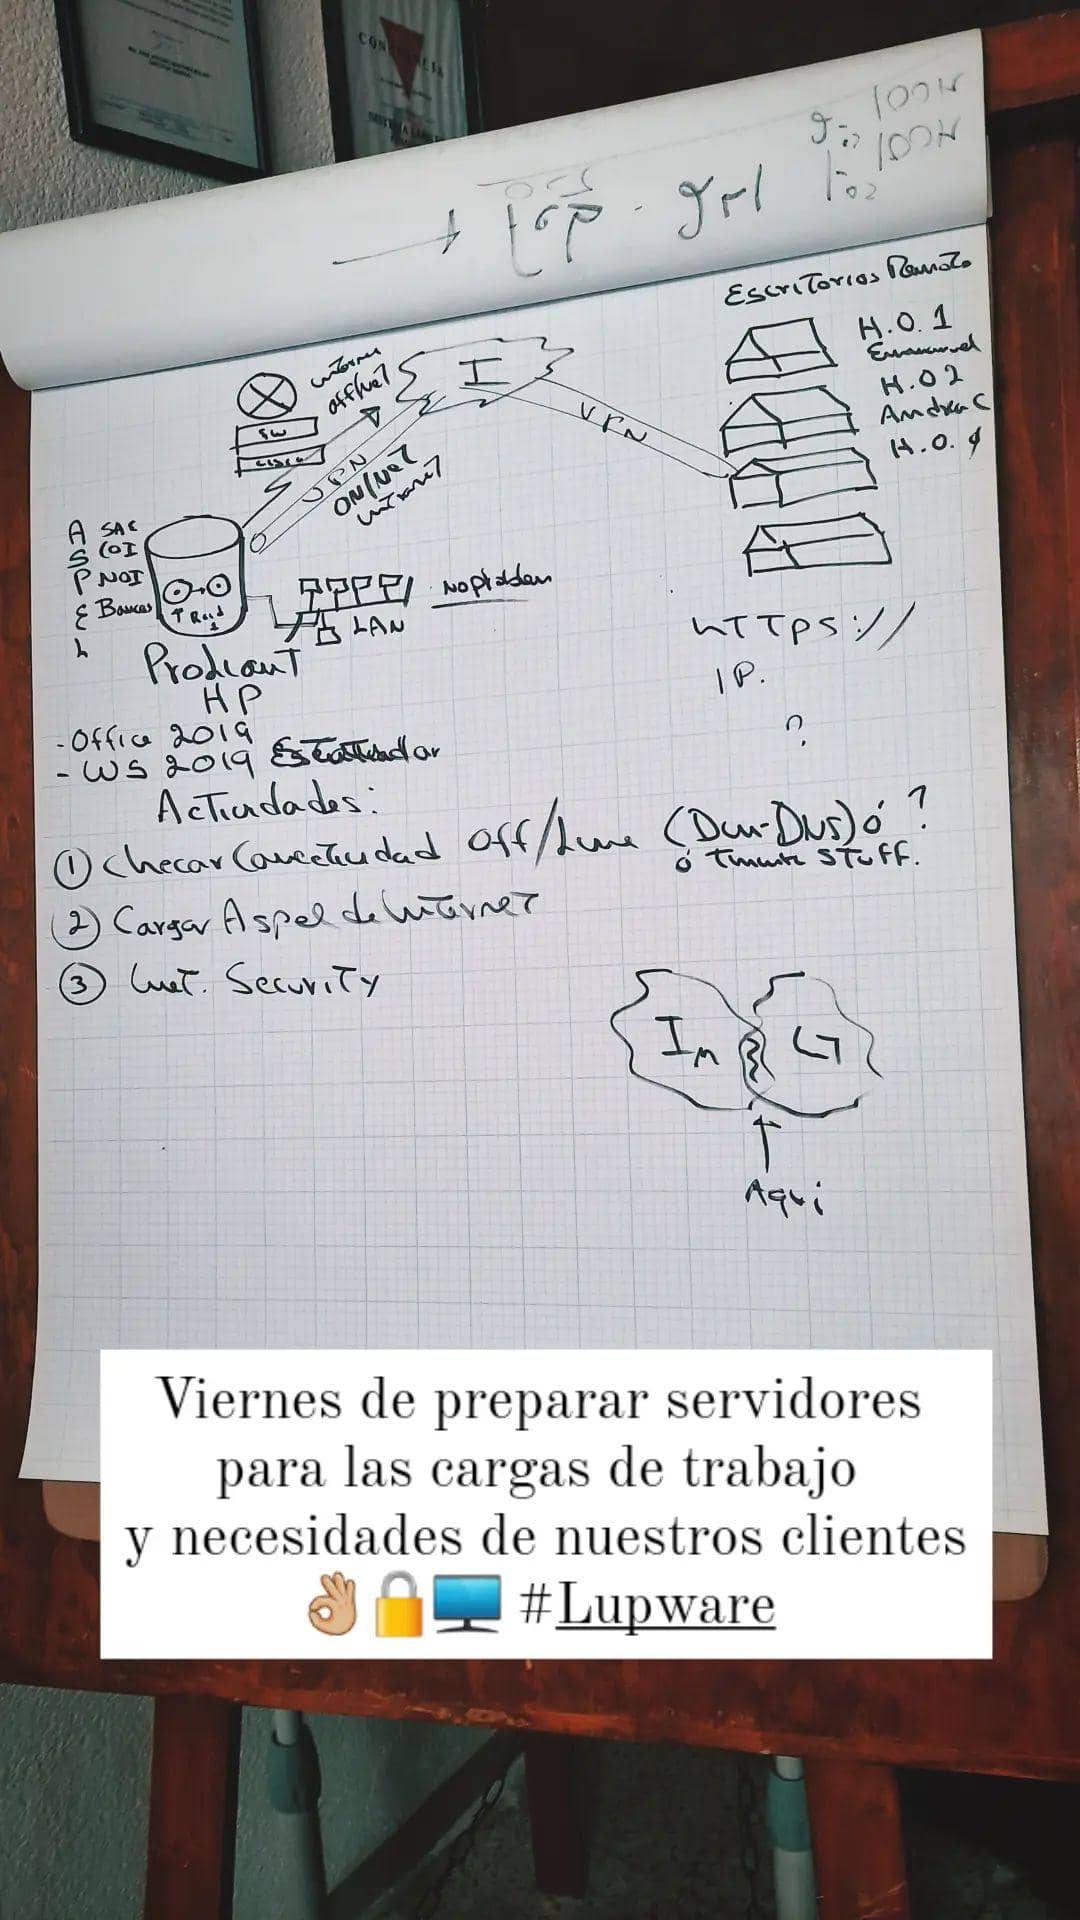 Escritorios Remoto
H.O. 1
Emmanuel
H.O 2
Andrea C
H.O. 4
I
internet
off/net
SW
CISCO
VPN
ON/NET
VPN
ASPEL
SAE
COI
NOI
Bancos
Raid
1
LAN
Proliant
HP
HTTPS://
IP.
?
-Office 2019
- WS 2019 Estandar
Actividades:
① Checar Conectividad Off/Line (Dyn-DNS) ó ?
ó STUFF.
② Cargar Aspel de internet
③ Inst. Security
Aqui
Viernes de preparar servidores
para las cargas de trabajo
y necesidades de nuestros clientes
👌🏼🔒🖥️ #Lupware